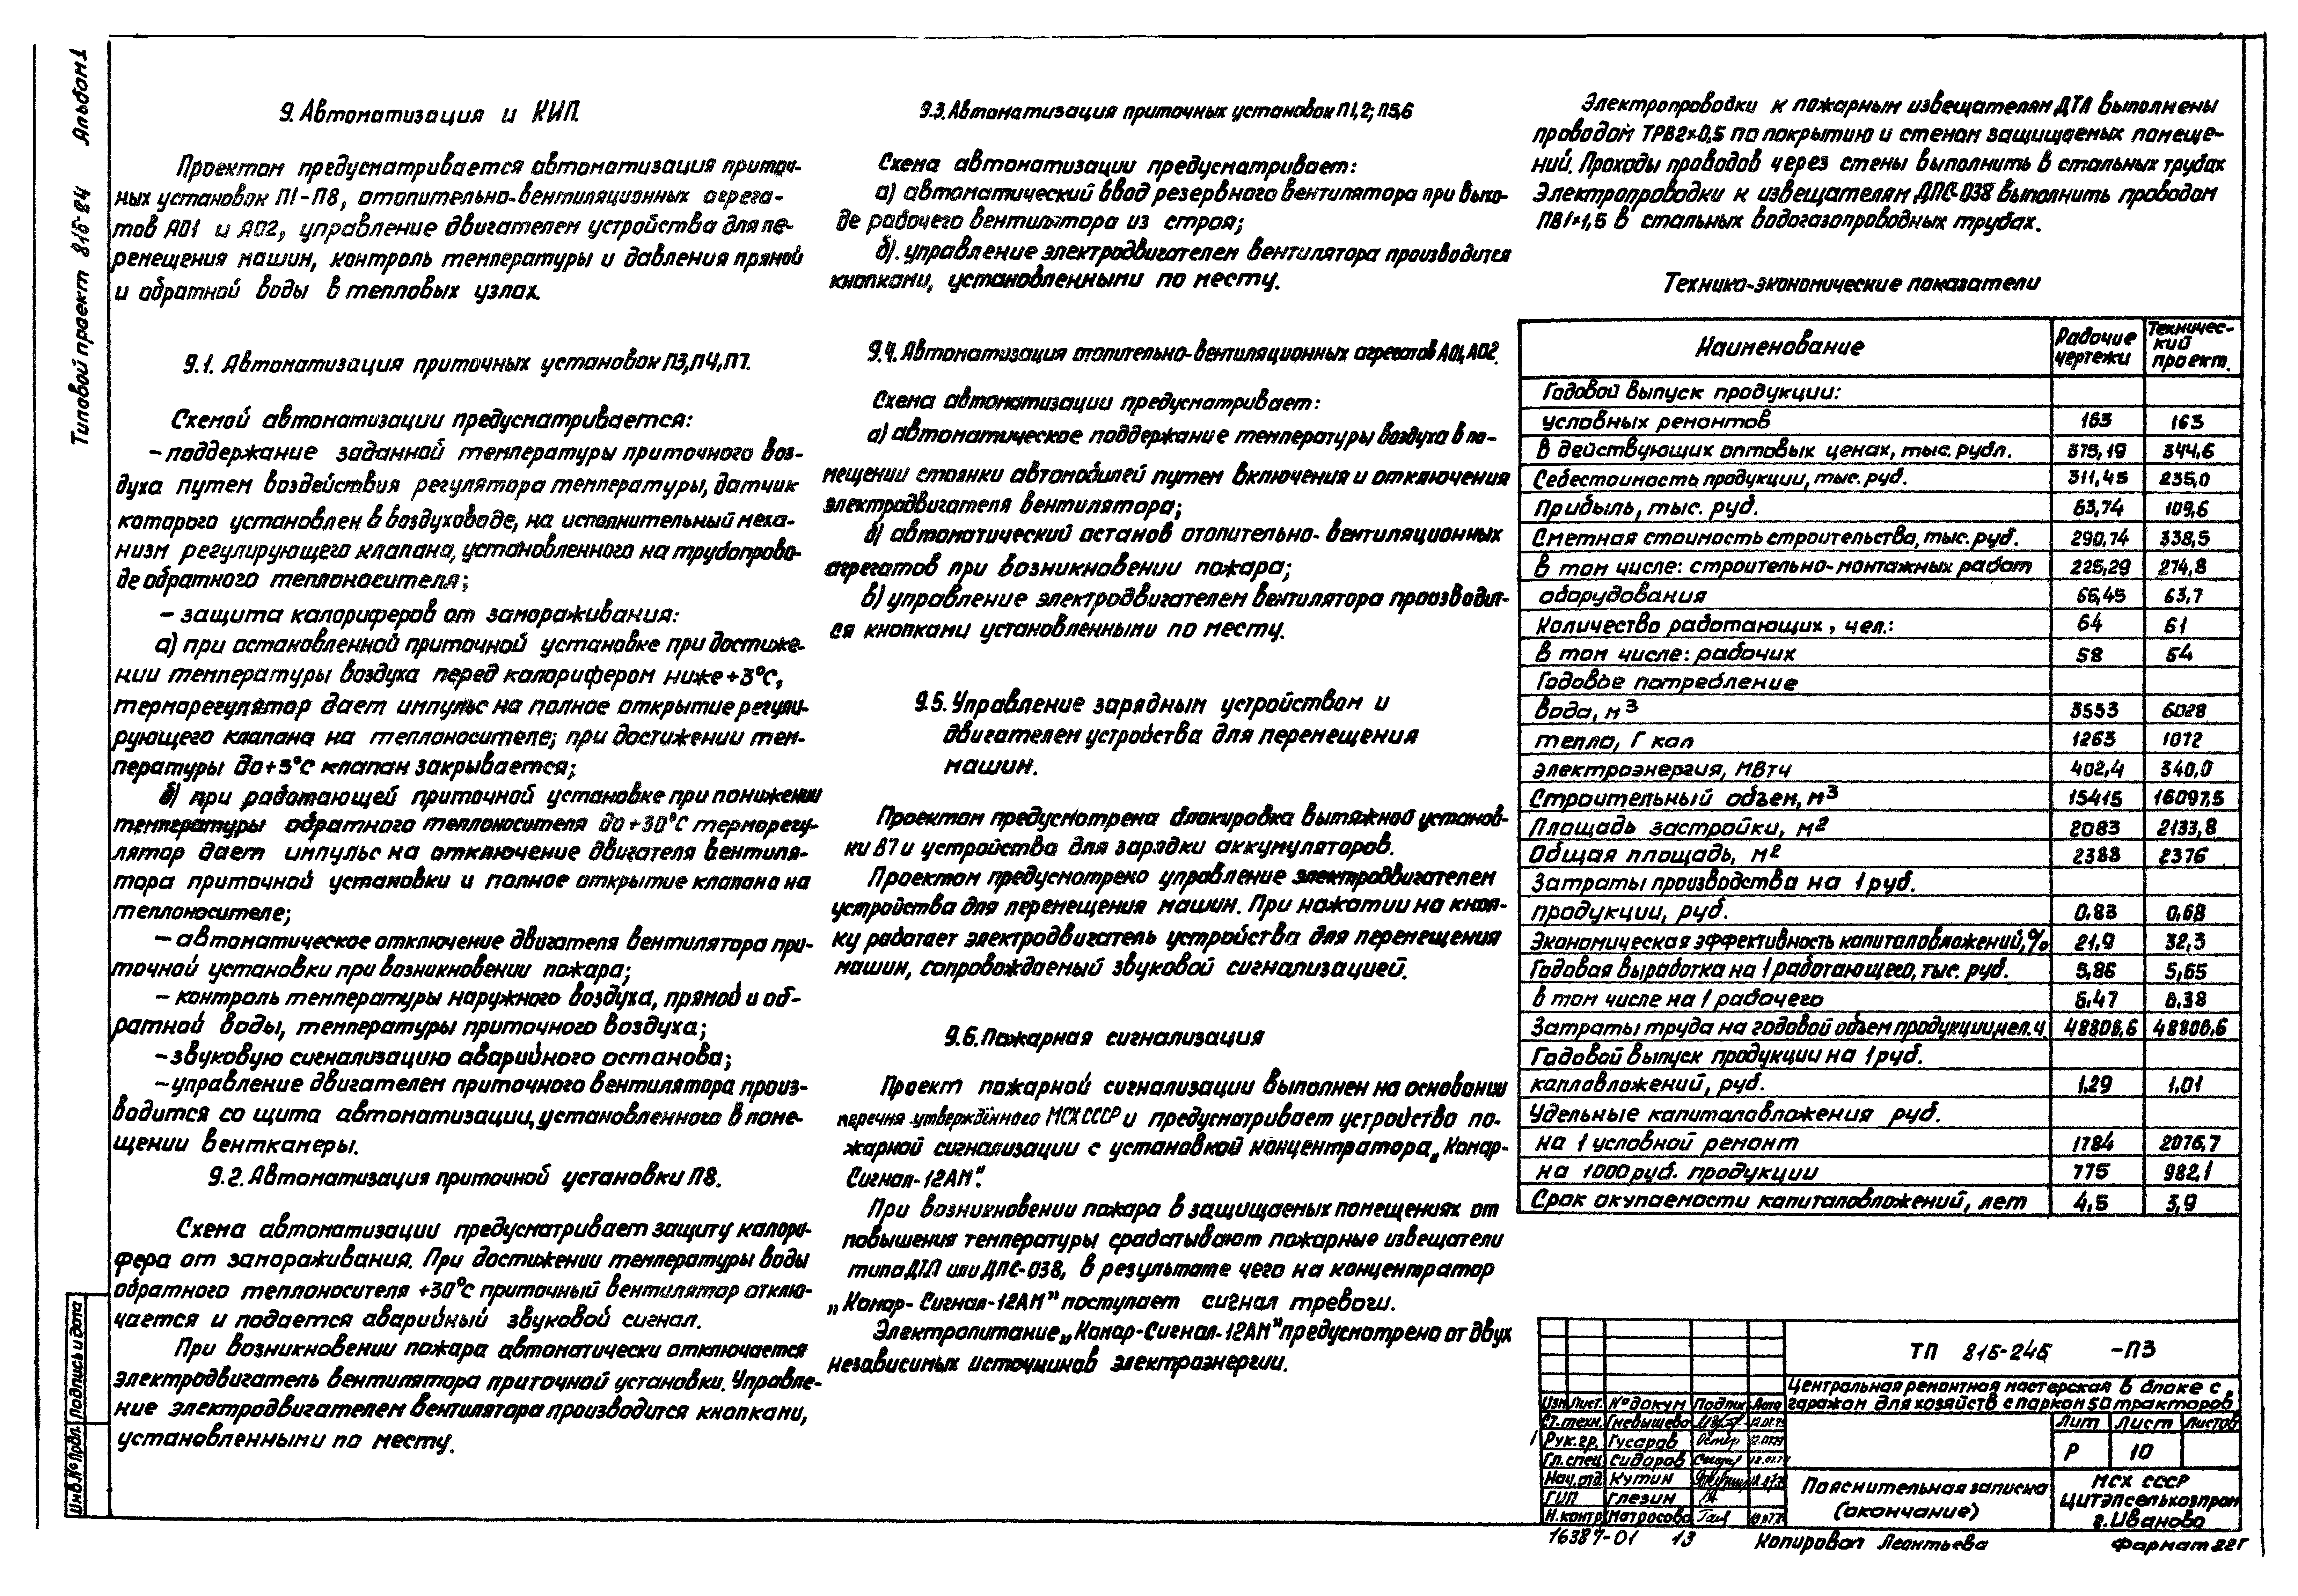 Альбом 1
Типовой проект 816-24
9. Автоматизация и КИП.
Проектом предусматривается автоматизация приточ-
ных установок П1-П8, отопительно-вентиляционных агрега-
тов А01 и А02, управление двигателем устройства для пе-
ремещения машин, контроль температуры и давления прямой
и обратной воды в тепловых узлах.
9.1. Автоматизация приточных установок П3,П4,П7.
Схемой автоматизации предусматривается:
- поддержание заданной температуры приточного воз-
духа путем воздействия регулятора температуры, датчик
которого установлен в воздуховоде, на исполнительный меха-
низм регулирующего клапана, установленного на трубопрово-
де обратного теплоносителя;
- защита калориферов от замораживания:
а) при остановленной приточной установке при достиже-
нии температуры воздуха перед калорифером ниже +3°С,
терморегулятор дает импульс на полное открытие регули-
рующего клапана на теплоносителе; при достижении тем-
пературы до +5°С клапан закрывается;
б) при работающей приточной установке при понижении
температуры обратного теплоносителя до +30°С терморегу-
лятор дает импульс на отключение двигателя вентиля-
тора приточной установки и полное открытие клапана на
теплоносителе;
- автоматическое отключение двигателя вентилятора при-
точной установки при возникновении пожара;
- контроль температуры наружного воздуха, прямой и об-
ратной воды, температуры приточного воздуха;
- звуковую сигнализацию аварийного останова;
- управление двигателем приточного вентилятора произ-
водится со щита автоматизации, установленного в поме-
щении венткамеры.
9.2. Автоматизация приточной установки П8.
Схема автоматизации предусматривает защиту калори-
фера от замораживания. При достижении температуры воды
обратного теплоносителя +30°С приточный вентилятор отклю-
чается и подается аварийный звуковой сигнал.
При возникновении пожара автоматически отключается
электродвигатель вентилятора приточной установки. Управле-
ние электродвигателем вентилятора производится кнопками,
установленными по месту.
9.3. Автоматизация приточных установок П1,2; П5,6
Схема автоматизации предусматривает:
а) автоматический ввод резервного вентилятора при выхо-
де рабочего вентилятора из строя;
б). управление электродвигателем вентилятора производится
кнопками, установленными по месту.
9.4. Автоматизация отопительно-вентиляционных агрегатов А01, А02.
Схема автоматизации предусматривает:
а) автоматическое поддержание температуры воздуха в по-
мещении стоянки автомобилей путем включения и отключения
электродвигателя вентилятора;
б) автоматический останов отопительно-вентиляционных
агрегатов при возникновении пожара;
в) управление электродвигателем вентилятора производит-
ся кнопками установленными по месту.
9.5. Управление зарядным устройством и
двигателем устройства для перемещения
машин.
Проектом предусмотрена блокировка вытяжной установ-
ки В7 и устройства для зарядки аккумуляторов.
Проектом предусмотрено управление электродвигателем
устройства для перемещения машин. При нажатии на кноп-
ку работает электродвигатель устройства для перемещения
машин, сопровождаемый звуковой сигнализацией.
9.6. Пожарная сигнализация
Проект пожарной сигнализации выполнен на основании
перечня утверждённого МСХ СССР и предусматривает устройство по-
жарной сигнализации с установкой концентратора „Комар-
Сигнал-12АМ".
При возникновении пожара в защищаемых помещениях от
повышения температуры срабатывают пожарные извещатели
типа ДТЛ или ДПС-038, в результате чего на концентратор
„Комар-Сигнал-12АМ" поступает сигнал тревоги.
Электропитание „Комар-Сигнал-12АМ" предусмотрено от двух
независимых источников электроэнергии.
Электропроводки к пожарным извещателям ДТЛ выполнены
проводом ТРВ2×0,5 по покрытию и стенам защищаемых помеще-
ний. Проходы проводов через стены выполнить в стальных трубах
Электропроводки к извещателям ДПС-038 выполнить проводом
ПВ1×1,5 в стальных водогазопроводных трубах.
Технико-экономические показатели
Наименование Рабочие чертежи Техничес-кий проект.
Годовой выпуск продукции:
условных ремонтов 163 163
в действующих оптовых ценах, тыс. рубл. 375,19 344,6
Себестоимость продукции, тыс. руб. 311,45 235,0
Прибыль, тыс. руб. 63,74 109,6
Сметная стоимость строительства, тыс. руб. 290,74 338,5
в том числе: строительно-монтажных работ 225,29 274,8
оборудования 65,45 63,7
Количество работающих, чел.: 64 61
в том числе: рабочих 58 54
Годовое потребление
вода, м³ 3553 6028
тепло, Гкал 1263 1072
электроэнергия, МВтч 402,4 340,0
Строительный объем, м³ 15415 16097,5
Площадь застройки, м² 2083 2133,8
Общая площадь, м² 2388 2376
Затраты производства на 1 руб.
продукции, руб. 0,83 0,68
Экономическая эффективность капиталовложений, % 21,9 32,3
Годовая выработка на 1 работающего, тыс. руб. 5,86 5,65
в том числе на 1 рабочего 6.47 6.38
Затраты труда на годовой объем продукции, чел.ч. 48806,6 48806,6
Годовой выпуск продукции на 1 руб.
капловложений, руб. 1.29 1,01
Удельные капиталовложения руб.
на 1 условной ремонт 1784 2076,7
на 1000 руб. продукции 775 982,1
Срок окупаемости капиталовложений, лет 4,5 3,9
ТП 816-246 -ПЗ
Центральная ремонтная мастерская в блоке с
гаражом для хозяйств с парком 50 тракторов
Изм Лист. № докум Подпис Дата
Ст.техн. Гневышева
Рук.гр. Гусаров
Гл.спец. Сидоров
Нач.отд. Кутин
ГИП Глезин
Н.контр Матросова
Лит Лист Листов
Р 10
Пояснительная записка
(окончание)
МСХ СССР
ЦИТЭПсельхозпром
г.Иваново
16387-01 13 Копировал Леонтьева Формат 22Г
Инв.№ Подл. Подпись и дата